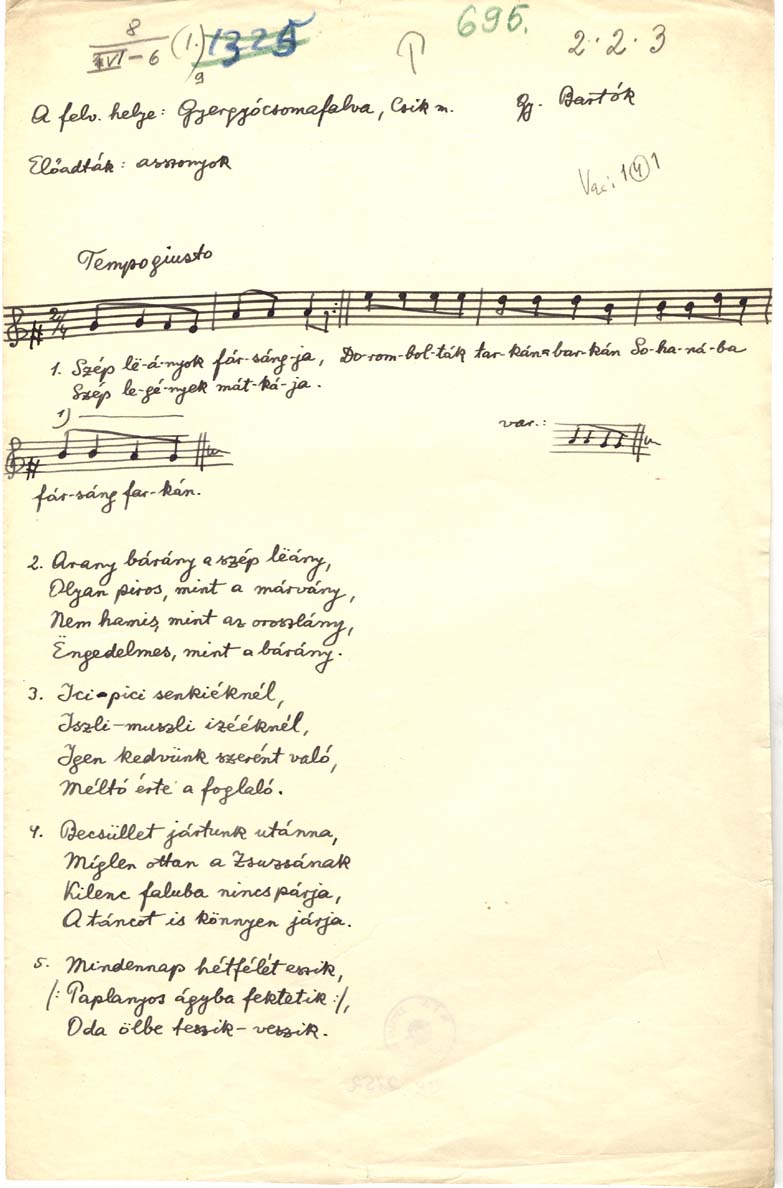 8
XVI-6 (1.) 1325 695. 2·2·3
9
A felv. helye: Gyergyócsomafalva, Csik m. Gy. Bartók
Előadták: asszonyok
Var: 1 4 1
Tempo giusto
2/4
1. Szép lë-á-nyok fár-sáng-ja, Do-rom-bol-ták tar-kán-bar-kán So-ha-ná-ba
Szép le-gé-nyek mát-ká-ja.
1) var.:
fár-sáng far-kán.
2. Arany bárány a szép lëány,
Olyan piros, mint a márvány,
Nem hamis, mint az oroszlány,
Ëngedelmes, mint a bárány.
3. Ici-pici senkiéknél,
Iszli-muszli izééknél,
Igen kedvünk szerént való,
Méltó érte a foglaló.
4. Becsüllet jártunk utánna,
Míglen ottan a Zsuzsának
Kilenc faluba nincs párja,
A táncot is könnyen járja.
5. Mindennap hétfélét eszik,
/: Paplanyos ágyba fektetik :/,
Oda ölbe teszik-veszik.